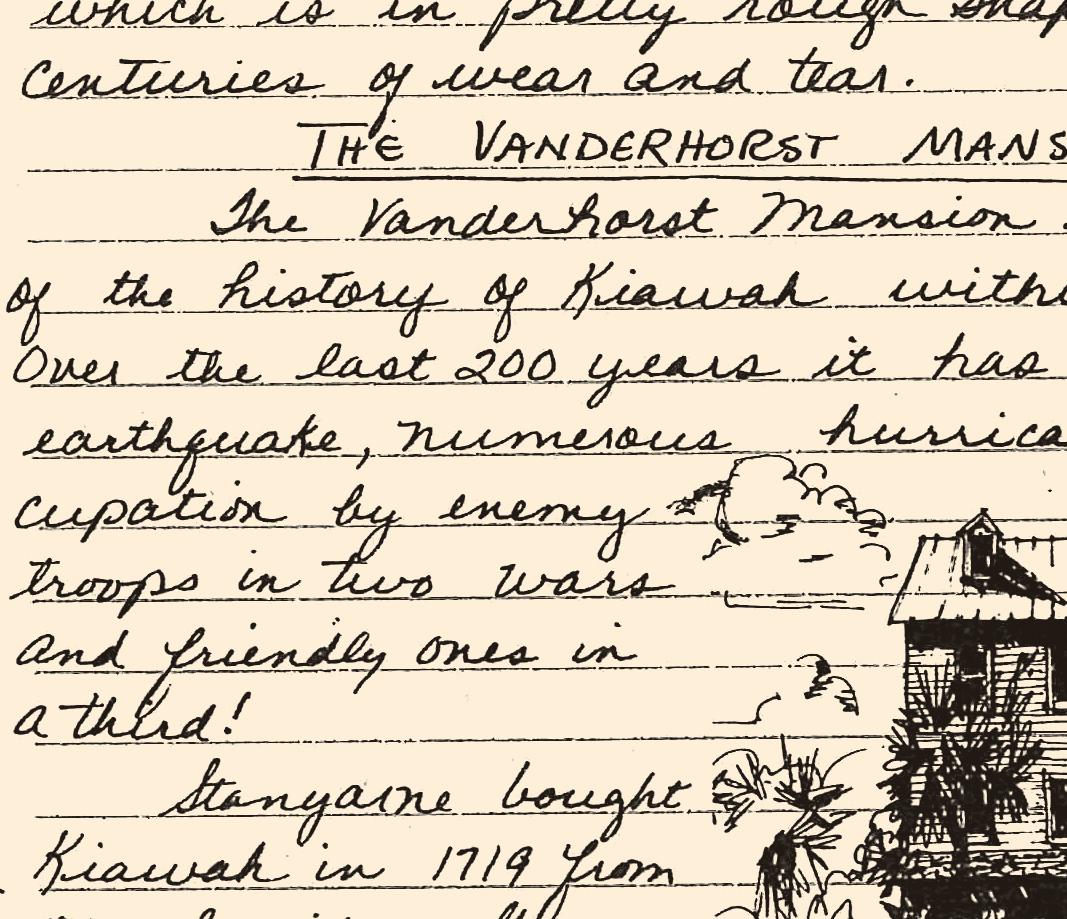 which is in pretty rough
centuries of wear and tear.
THE VANDERHORST MANS
The Vanderhorst Mansion
of the history of Kiawah with
Over the last 200 years it has
earthquake, numerous hurrica
cupation by enemy
troops in two wars
and friendly ones in
a third!
Stanyarne bought
Kiawah in 1719 from